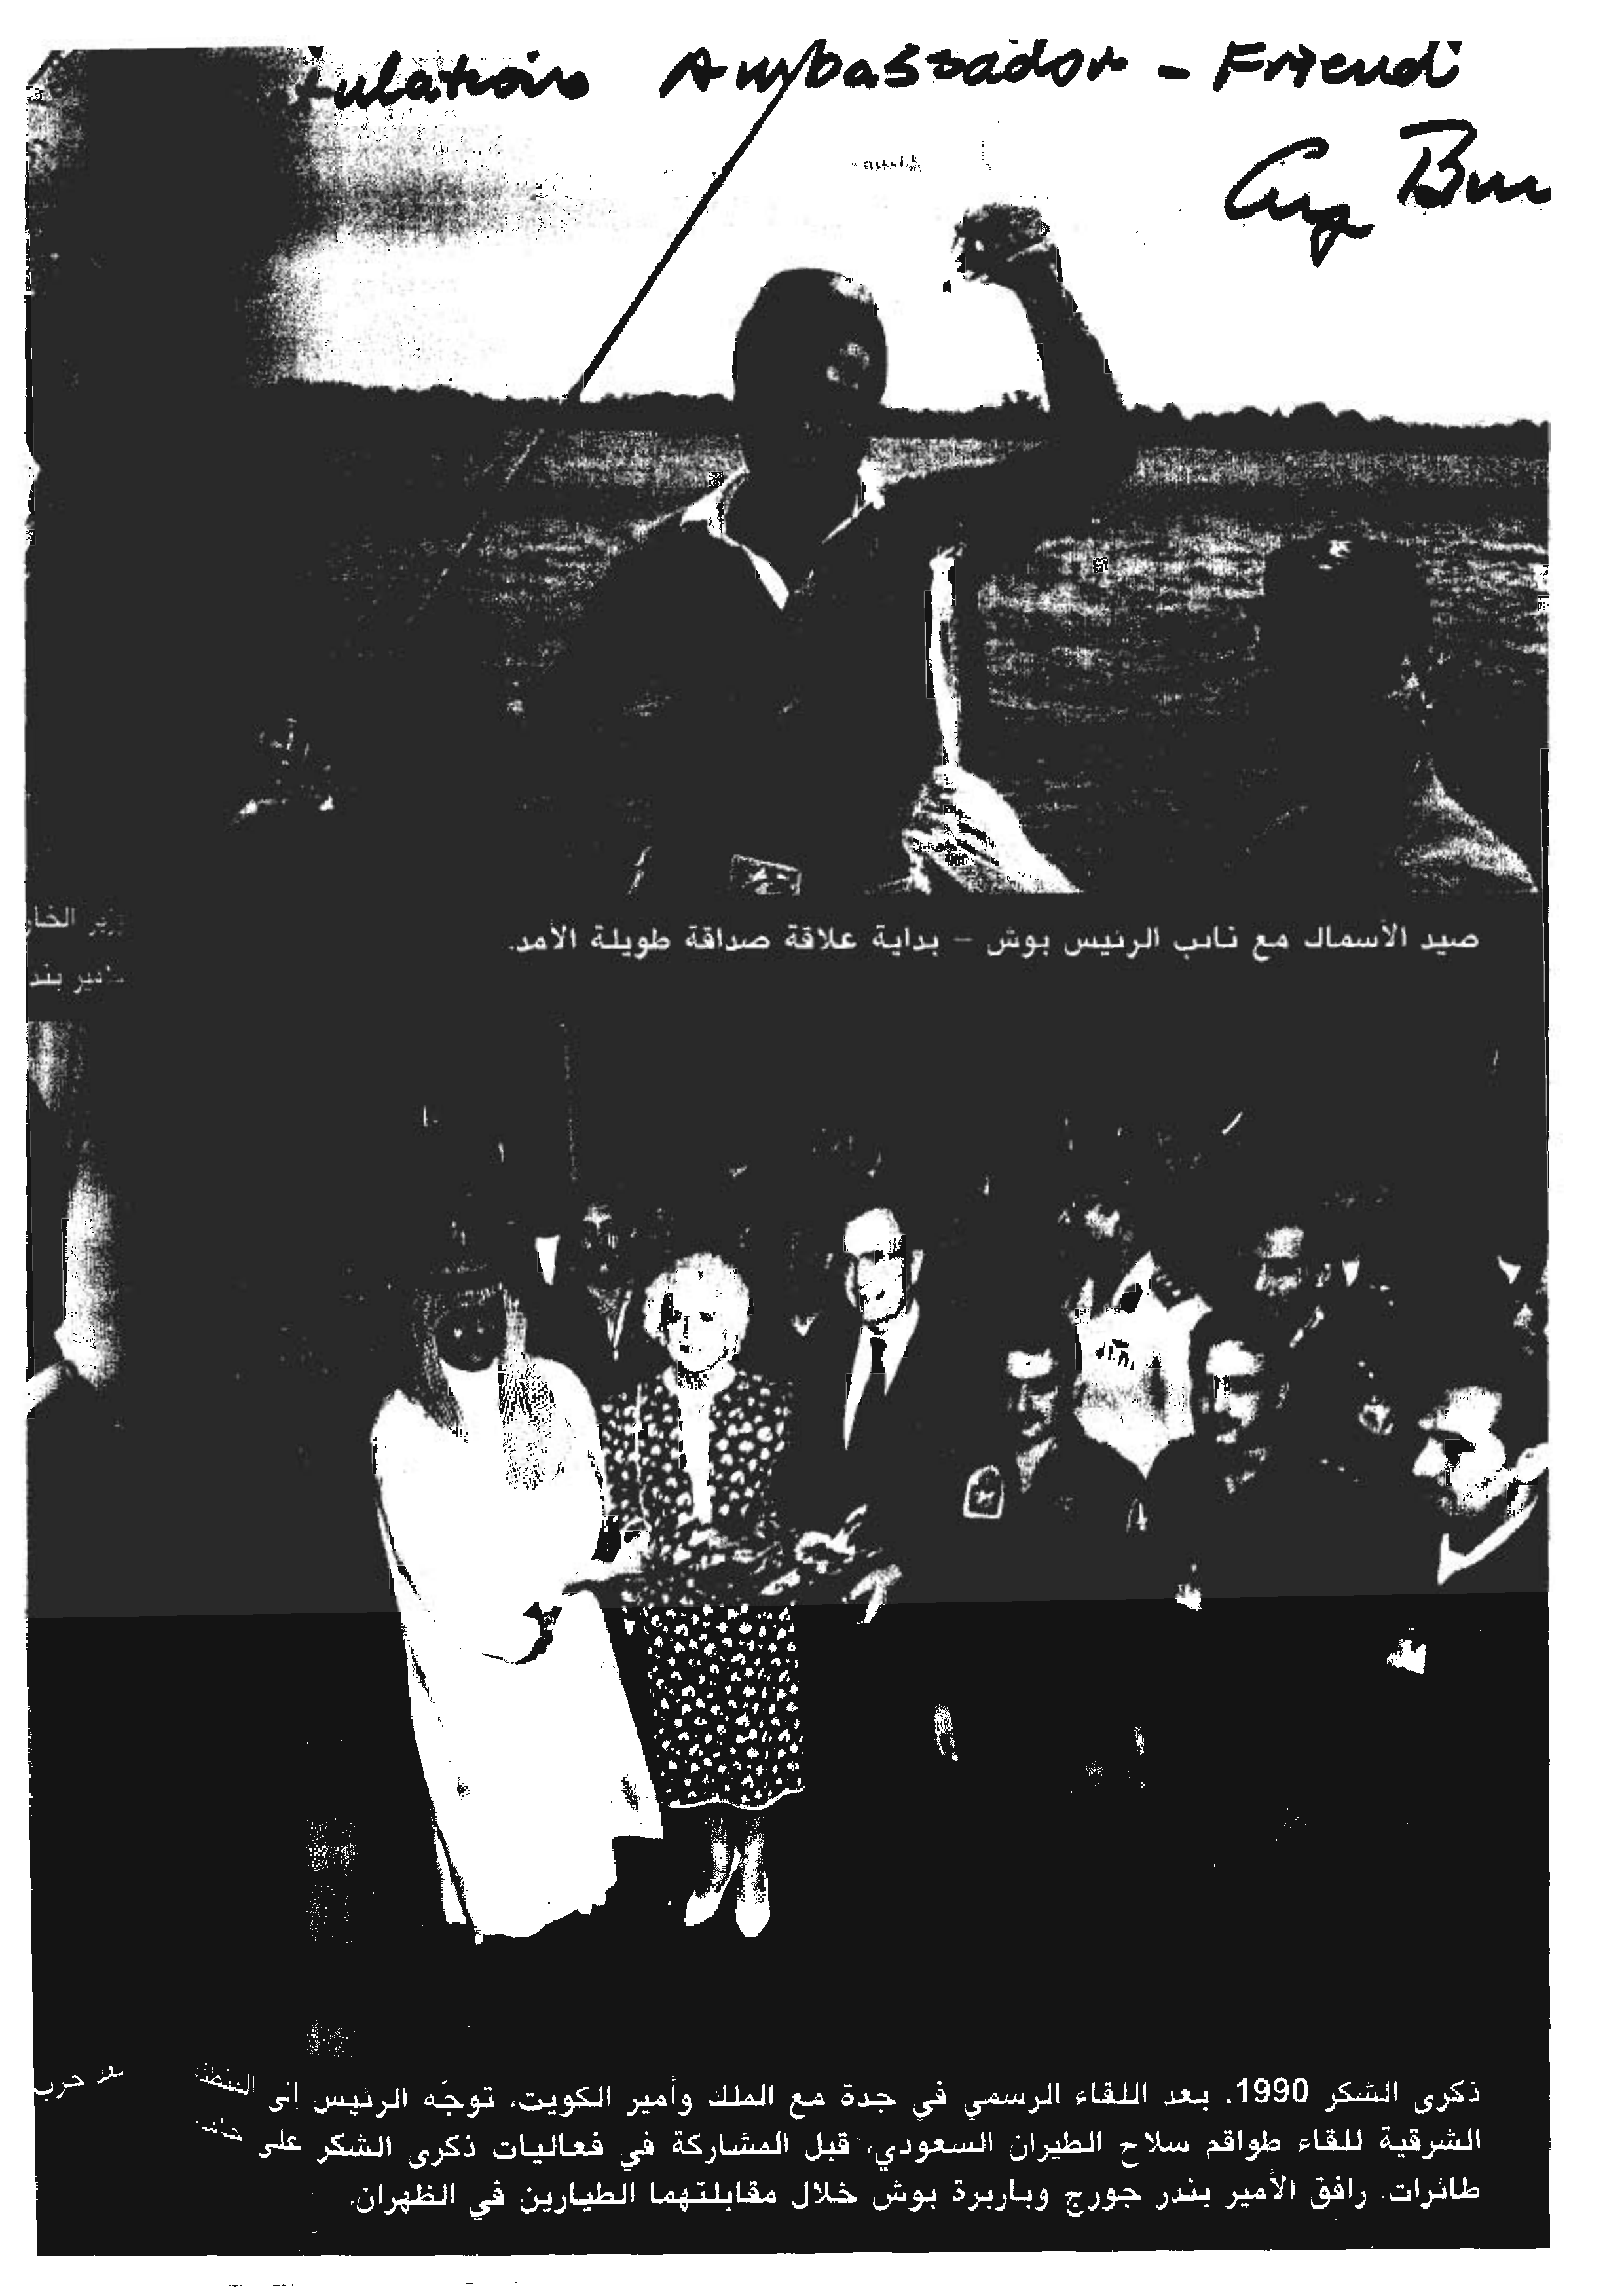 ulations Ambassador - Friend
صيد الأسماك مع نائب الرئيس بوش – بداية علاقة صداقة طويلة الأمد.
ذكرى الشكر 1990. بعد اللقاء الرسمي في جدة مع الملك وأمير الكويت، توجّه الرئيس إلى المنطقة
الشرقية للقاء طواقم سلاح الطيران السعودي، قبل المشاركة في فعاليات ذكرى الشكر على
طائرات. رافق الأمير بندر جورج وباربرة بوش خلال مقابلتهما الطيارين في الظهران.
حرب